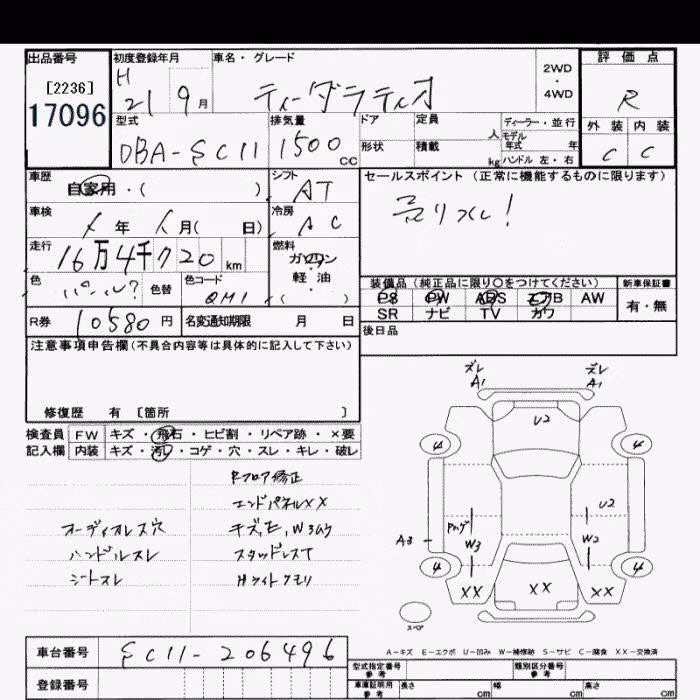 出品番号 初度登録年月 車名・グレード 評価点
[2236] H 2WD
17096 21 9月 ティーダラティオ ・ R
4WD
型式 排気量 ドア 定員 ディーラー・並行 外装 内装
DBA-SC11 1500cc 人 モデル年式 年 C C
形状 積載 kg ハンドル 左・右
車歴 シフト セールスポイント(正常に機能するものに限ります)
自家用・( ) AT 売り切れ!
車検 冷房
年 月( 日) AC
走行 燃料
16万4千720km ガソリン
色 色替 色コード 軽油
パール? QM1 ( ・ )
装備品(純正品に限り〇をつけてください) 新車保証書
PS PW ABS エアB AW 有・無
SR ナビ TV カワ
R券 10580円 名変通知期限 月 日
後日品
注意事項申告欄(不具合内容等は具体的に記入して下さい)
修復歴 有 [箇所 ]
検査員 FW キズ・飛石・ヒビ割・リペア跡・×要
記入欄 内装 キズ・汚れ・コゲ・穴・スレ・キレ・破レ
Rフロア修正
エンドパネルXX
オーディオレス穴 キズ,E,W3ムラ
ハンドルスレ スタッドレスT
シートスレ Hライトクモリ
ズレ ズレ
A1 A1
U2
4 4
U2
A3 W3 W2
4 4
XX XX XX
スペア
A-キズ E-エクボ U-凹み W-補修跡 S-サビ C-腐食 XX-交換済
車台番号 SC11-206496
登録番号
型式指定番号 参考 類別区分番号 参考
車庫証明用 参考 長さ cm 幅 cm 高さ cm